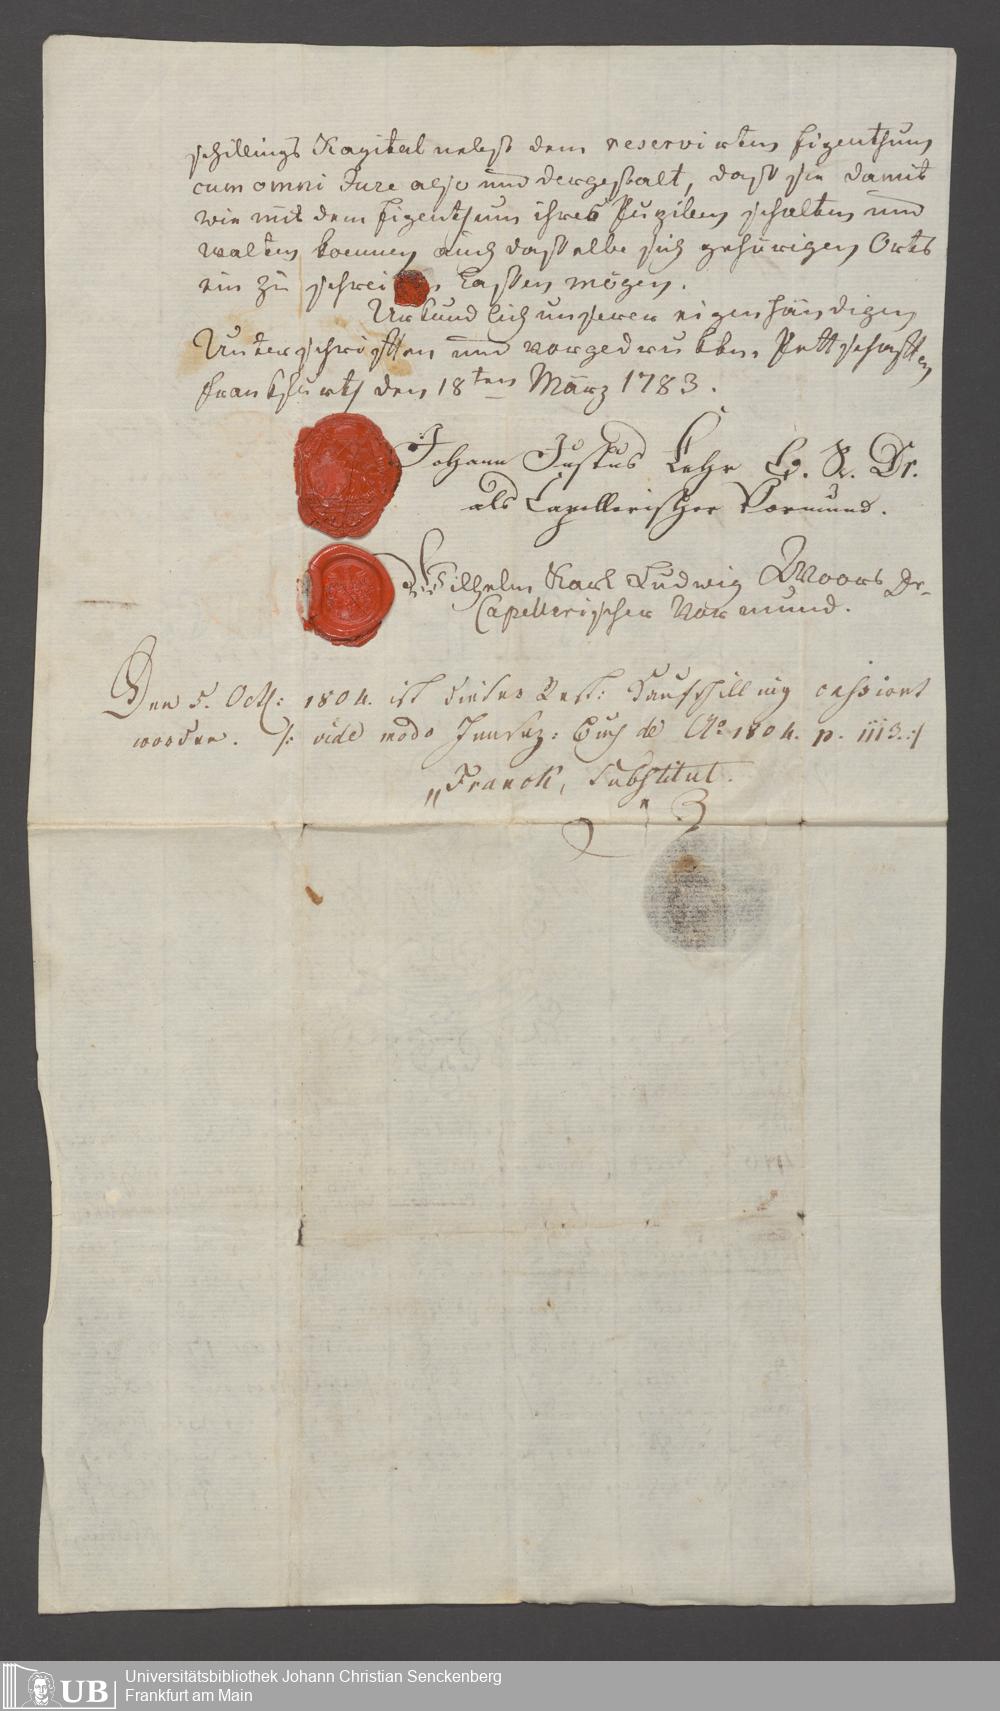 schillings Kapital nebst dem reservirten Eigenthum
cum omni Jure also und dergestalt, daß sie damit
wie mit dem Eigenthum ihres Pupillen schalten und
walten koennen auch dasselbe sich gehörigen Orts
ein zu schreiben lassen mögen.
Urkundlich unserer eigenhändigen
Unterschriften und vorgedrukten Pettschaften
Frankfurth den 18ten März 1783.
Johann Justus Lehr Dr.
als Capellerischer Vormund.
Wilhelm Karl Ludwig Moors Dr
Capellerischer Vormund.
Den 5. Octb: 1804. ist dieser Rest: Kaufschilling cessiret
worden. /: vide modo Insaz: Buch de Ao 1804. p. 1113.:/
Franck, Substitut.
UB
Universitätsbibliothek Johann Christian Senckenberg
Frankfurt am Main